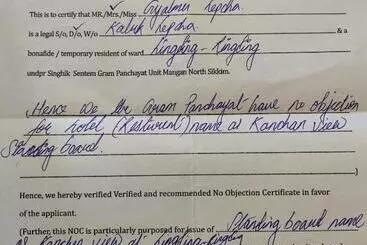 This is to certify that MR./Mrs./Miss Gyalmu Lepcha.
is a legal S/o, D/o, W/o Kaluk Lepcha. & a
bonafide / temporary resident of ward Lingling - Lingling
undpr Singhik Sentem Gram Panchayat Unit Mangan North Sikkim.
Hence we the Gram Panchayat have no objection
for hotel (Resturent) name as Kanchan View
Standing board.
)
Hence, we hereby verified Verified and recommended No Objection Certificate in favor
of the applicant.
(Further, this NOC is particularly purposed for issue of Standing board name
as Kanchan view at